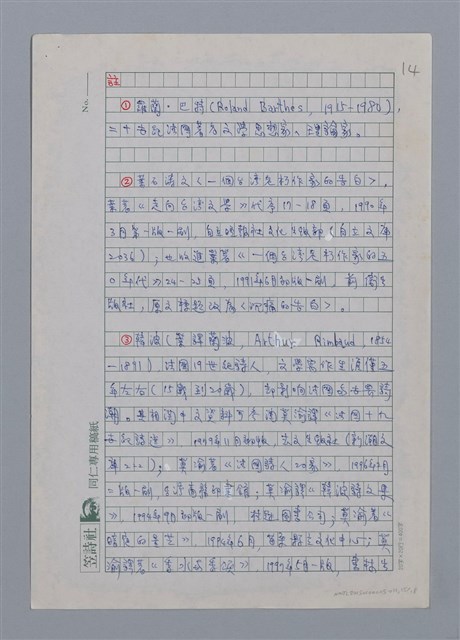 14
No.
註
① 羅蘭・巴特(Roland Barthes, 1915-1980),
二十世紀法國著名文學思想家、理論家。
② 葉石濤文〈一個台灣老朽作家的告白〉,
葉著《走向台灣文學》代序17-18頁,1990年
3月第一版一刷,自立晚報社文化出版部(自立文庫
2036);也收進葉著《一個台灣老朽作家的五
〇年代》24-25頁,1991年6月初版一刷,前衛出
版社,原文標題改為〈沉痛的告白〉。
③ 韓波(莫渝譯藍波,Arthur Rimbaud 1854
-1891),法國19世紀詩人,文學寫作生涯僅五
年左右(15歲到20歲),卻影響法國及世界詩
潮。其相關中文資料可參閱莫渝譯《法國十九
世紀詩選》,1979年11月初版,志文出版社(新潮文
庫);莫渝著《法國詩人20家》,
一版一刷,台灣商務印書館;莫渝譯《韓波詩文集
》,1994年9月初版一刷,桂冠圖書公司;莫渝著《
》,6月,文化中心;莫
渝譯著《》,1997年5月一版,書林出
笠詩社 同仁專用稿紙